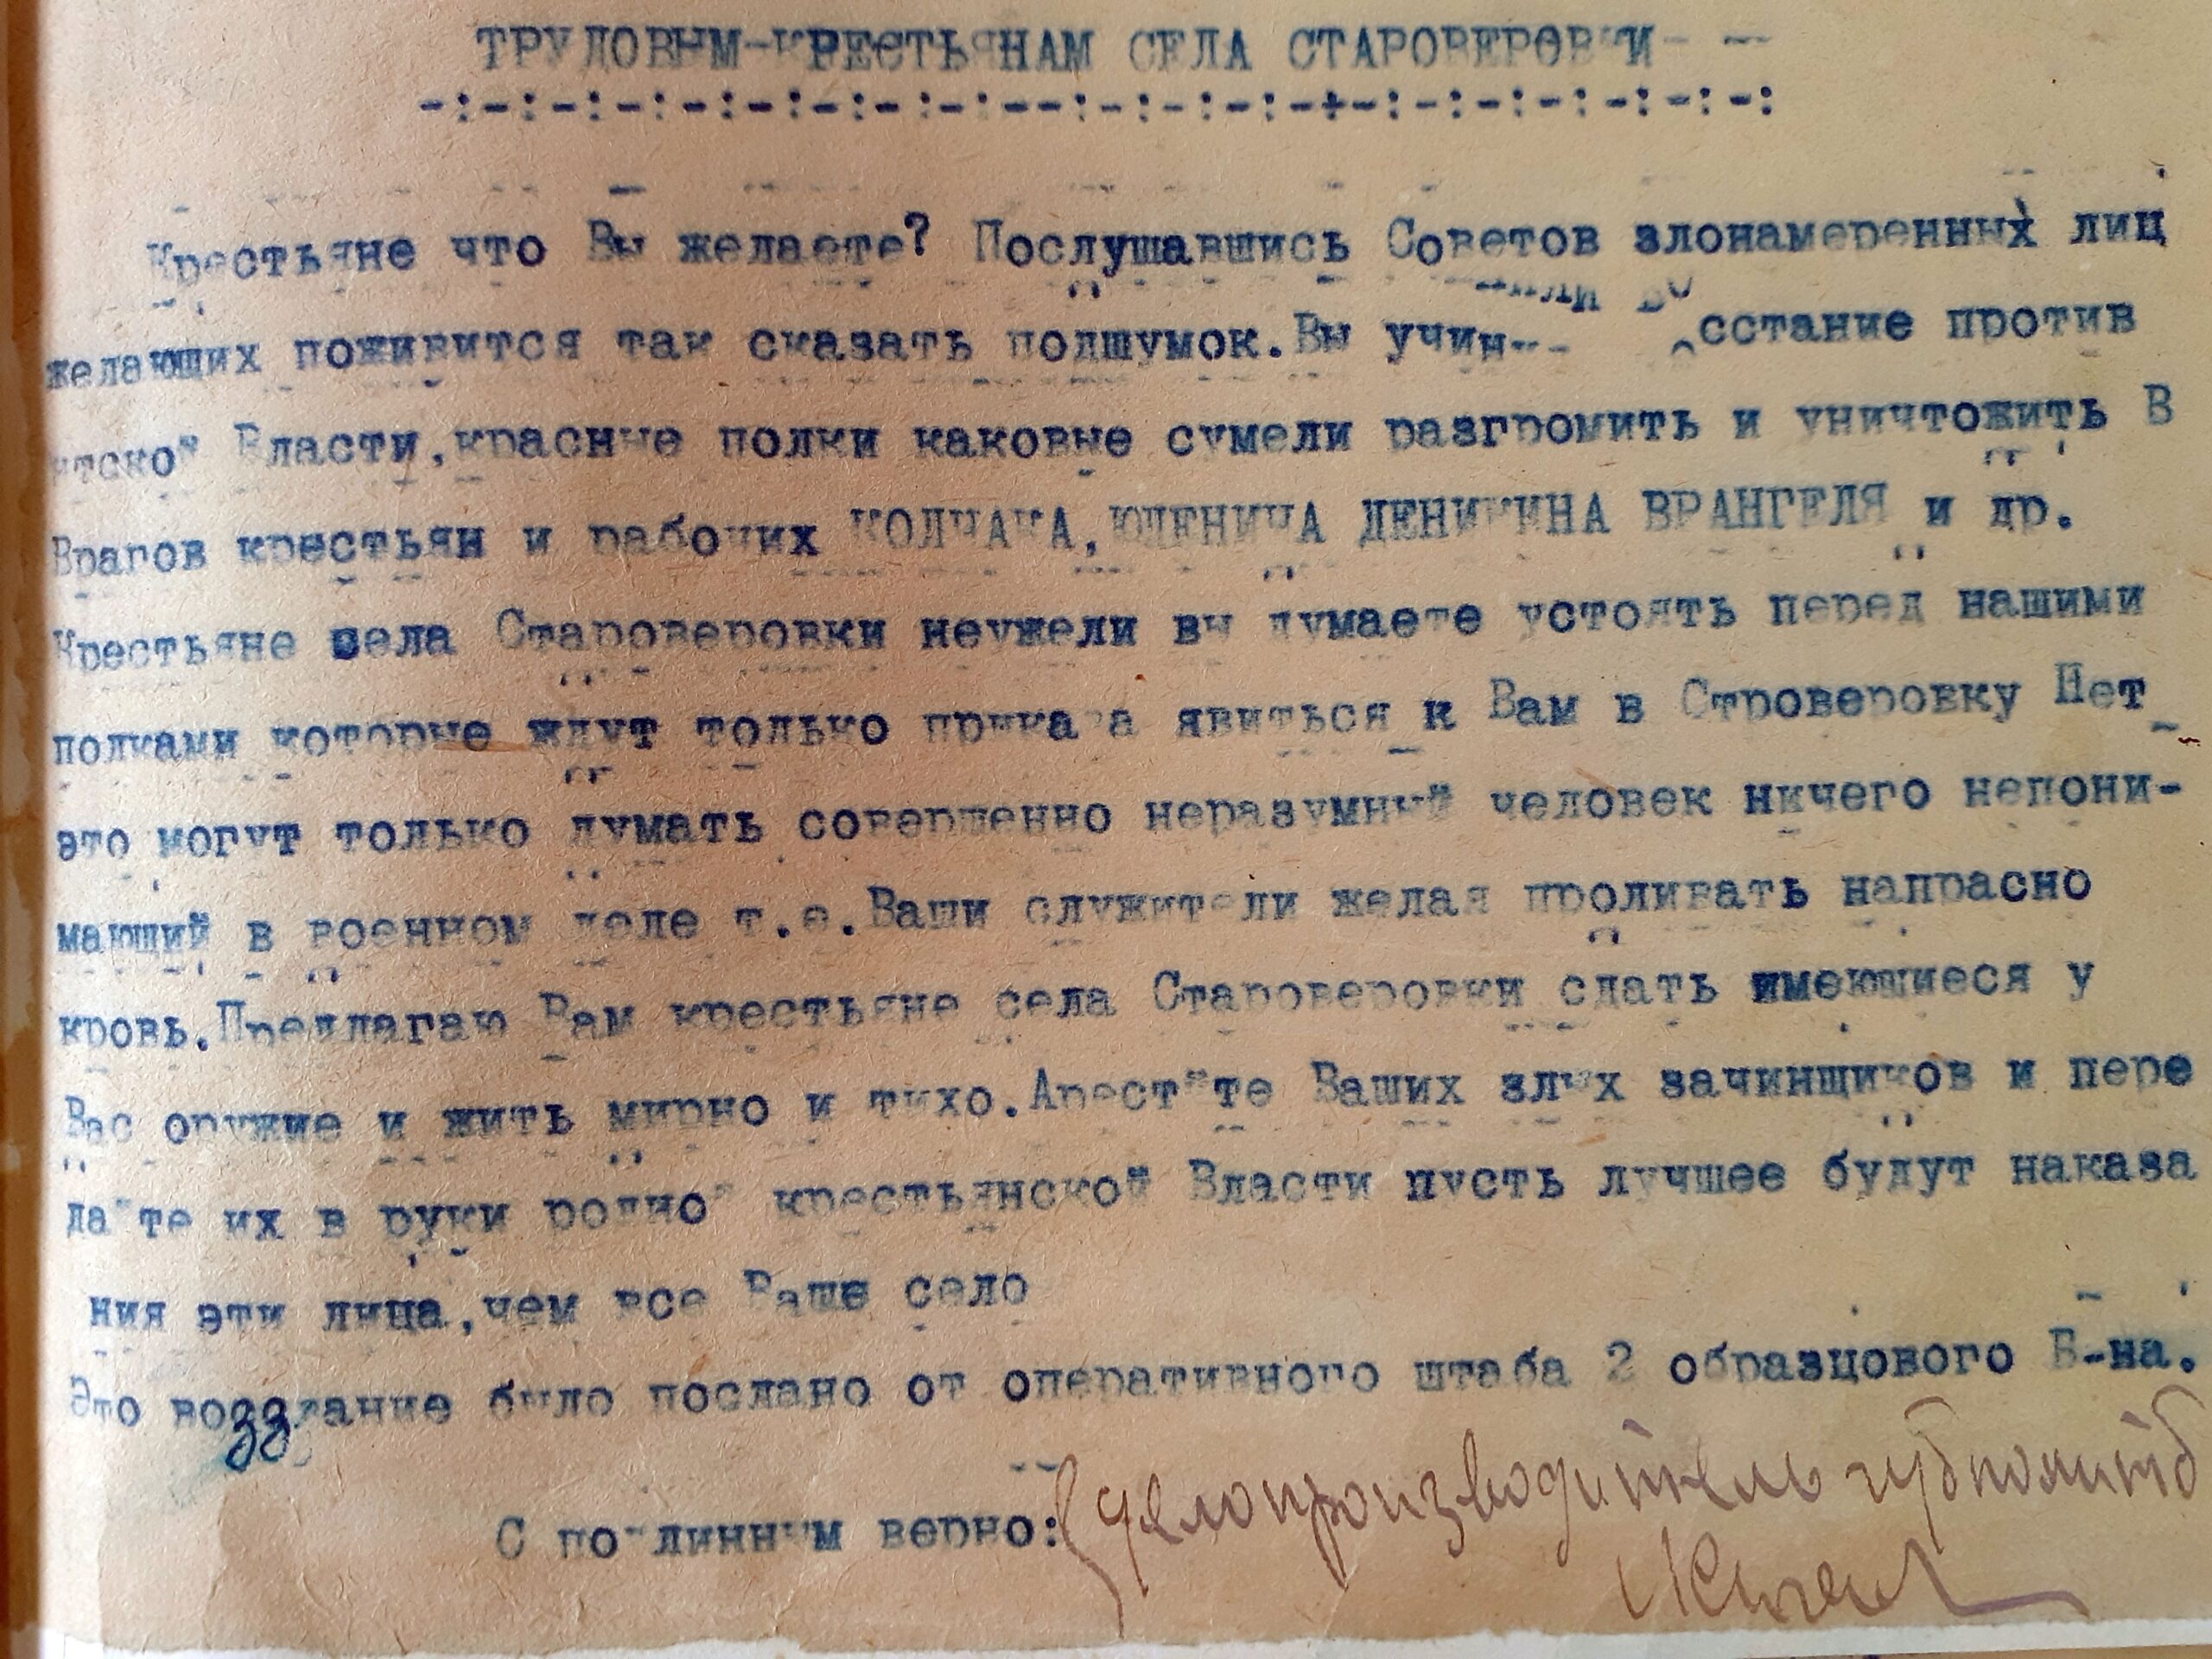 ТРУДОВЫМ-КРЕСТЬЯНАМ СЕЛА СТАРОВЕРОВКИ- -
-:-:-:-:-:-:-:-:-:--:-:-:-:-+-:-:-:-:-:-:
Крестьяне что Вы желаете? Послушавшись Советов злонамеренных лиц
желающих поживится так сказать подшумок. Вы учинили восстание против
тской Власти, красные полки каковые сумели разгромить и уничтожить В
Врагов крестьян и рабочих КОЛЧАКА, ЮДЕНИЧА ДЕНИКИНА ВРАНГЕЛЯ и др.
Крестьяне села Староверовки неужели вы думаете устоять перед нашими
полками которые ждут только приказа явиться к Вам в Строверовку Нет
это могут только думать совершенно неразумный человек ничего непони-
мающий в военном деле т.е. Ваши служители желая проливать напрасно
кровь. Предлагаю Вам крестьяне села Староверовки сдать имеющиеся у
Вас оружие и жить мирно и тихо. Арестуйте Ваших злых зачинщиков и пере
дайте их в руки родной крестьянской Власти пусть лучшее будут наказа
ния эти лица, чем все Ваше село
Это воззвание было послано от оперативного штаба 2 образцового Б-на.
С подлинным верно: Делопроизводитель